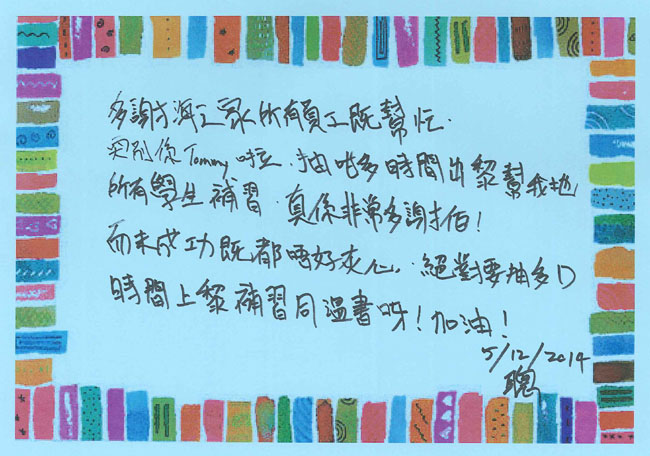 多謝才源之家所有員工既幫忙.
特別係Tommy啦.抽咁多時間出黎幫我地
所有學生補習.真係非常多謝才佰!
而未成功既都唔好灰心.絕對要抽多D
時間上黎補習同溫書呀!加油!
5/12/2014
聰